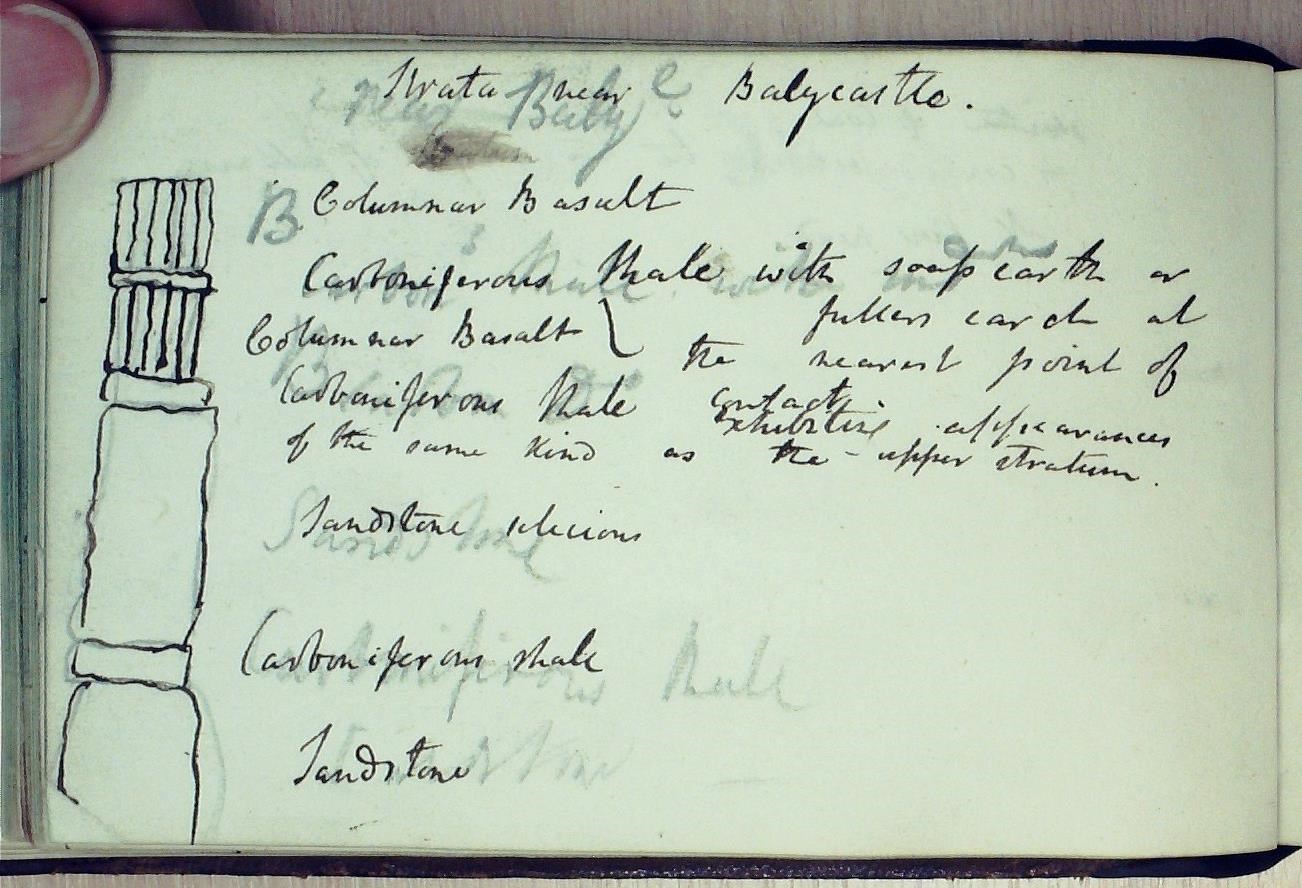 Strata near Balycastle.
B Columnar Basalt
Carboniferous Shale with soap earth or
fullers earch at
Columnar Basalt the nearest point of
Carboniferous Shale contact
exhibiting appearances
of the same kind as the upper stratum.
Sandstone silicious
Carboniferous shale
Sandstone